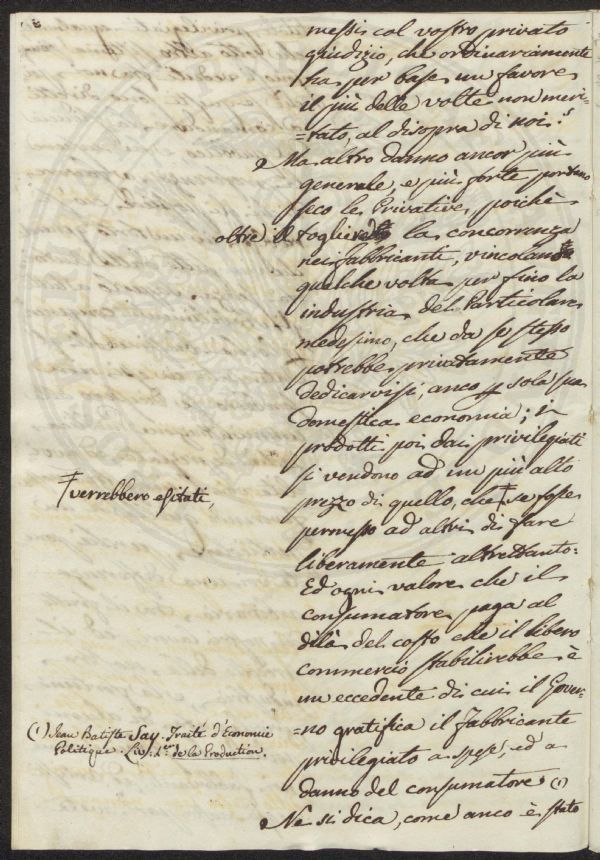 messi col vostro privato
giudizio, che ordinariamente
ha per base un favore
il più delle volte non meri=
=tato, al disopra di noi.
Ma altro danno ancor più
generale, e più forte portano
seco le Privative, poichè
oltre il togliere la concorrenza
nei fabbricanti, vincolano
qualche volta per fino la
industria del Particolare
medesimo, che da se stesso
potrebbe privatamente
dedicarvisi, anco p sola sua
domestica economia; i
prodotti poi dai privilegiati
si vendono ad un più alto
prezzo di quello, che ‡ se fosse
‡ verrebbero esitati,
permesso ad altri di fare
liberamente altrettanto.
Ed ogni valore che il
consumatore paga al
dilà del costo che il libero
commercio stabilirebbe è
un eccedente di cui il Gover=
=no gratifica il fabbricante
privilegiato a spese, ed a
danno del consumatore (1)
(1) Jean Batiste Say. Traité d'Economie
Politique. Liv: 1.er de la Production.
Nè si dica, come anco è stato